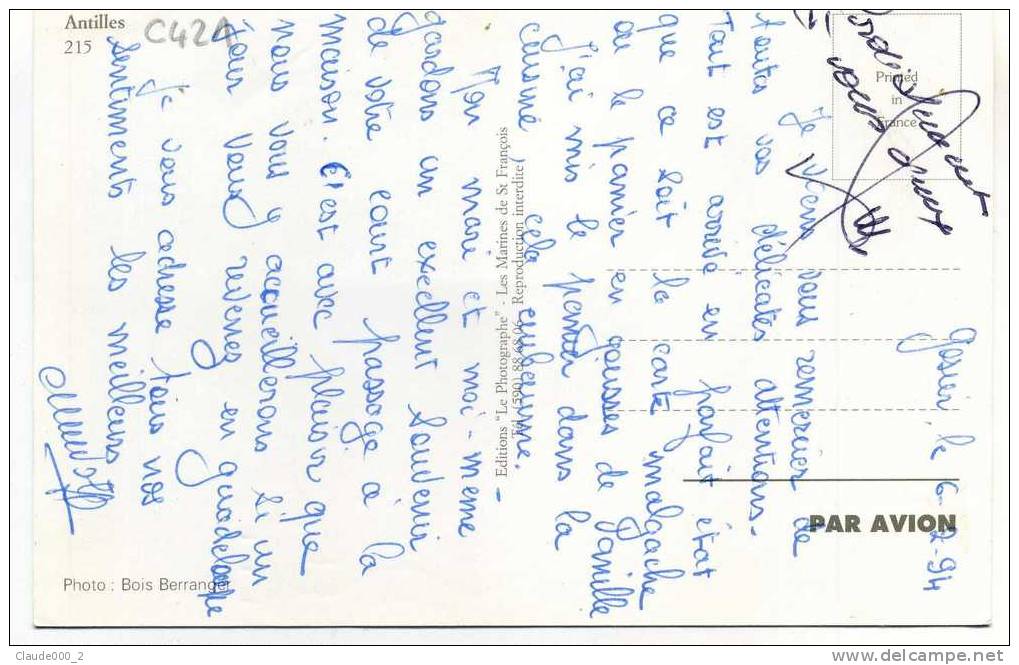 Gosier le 6-2-94
Je viens vous remercier de
toutes vos délicates attentions.
Tout est arrivé en parfait état
que ce soit la carte malgache
ou le panier en gousses de Vanille
j'ai mis le panier dans la
cuisine, cela embaume.
Mon mari et moi-même
gardons un excellent souvenir
de votre court passage à la
maison. C'est avec plaisir que
nous vous y accueillerons si un
jour vous revenez en guadeloupe
je vous adresse tous nos
sentiments les meilleurs
Antilles
215
C42A
Printed
in
France
Editions "Le Photographe" - Les Marines de St François
Tél. (590) 88 68 06 - Reproduction interdite
PAR AVION
Photo : Bois Berranger
Claude000_2
delcampe.net